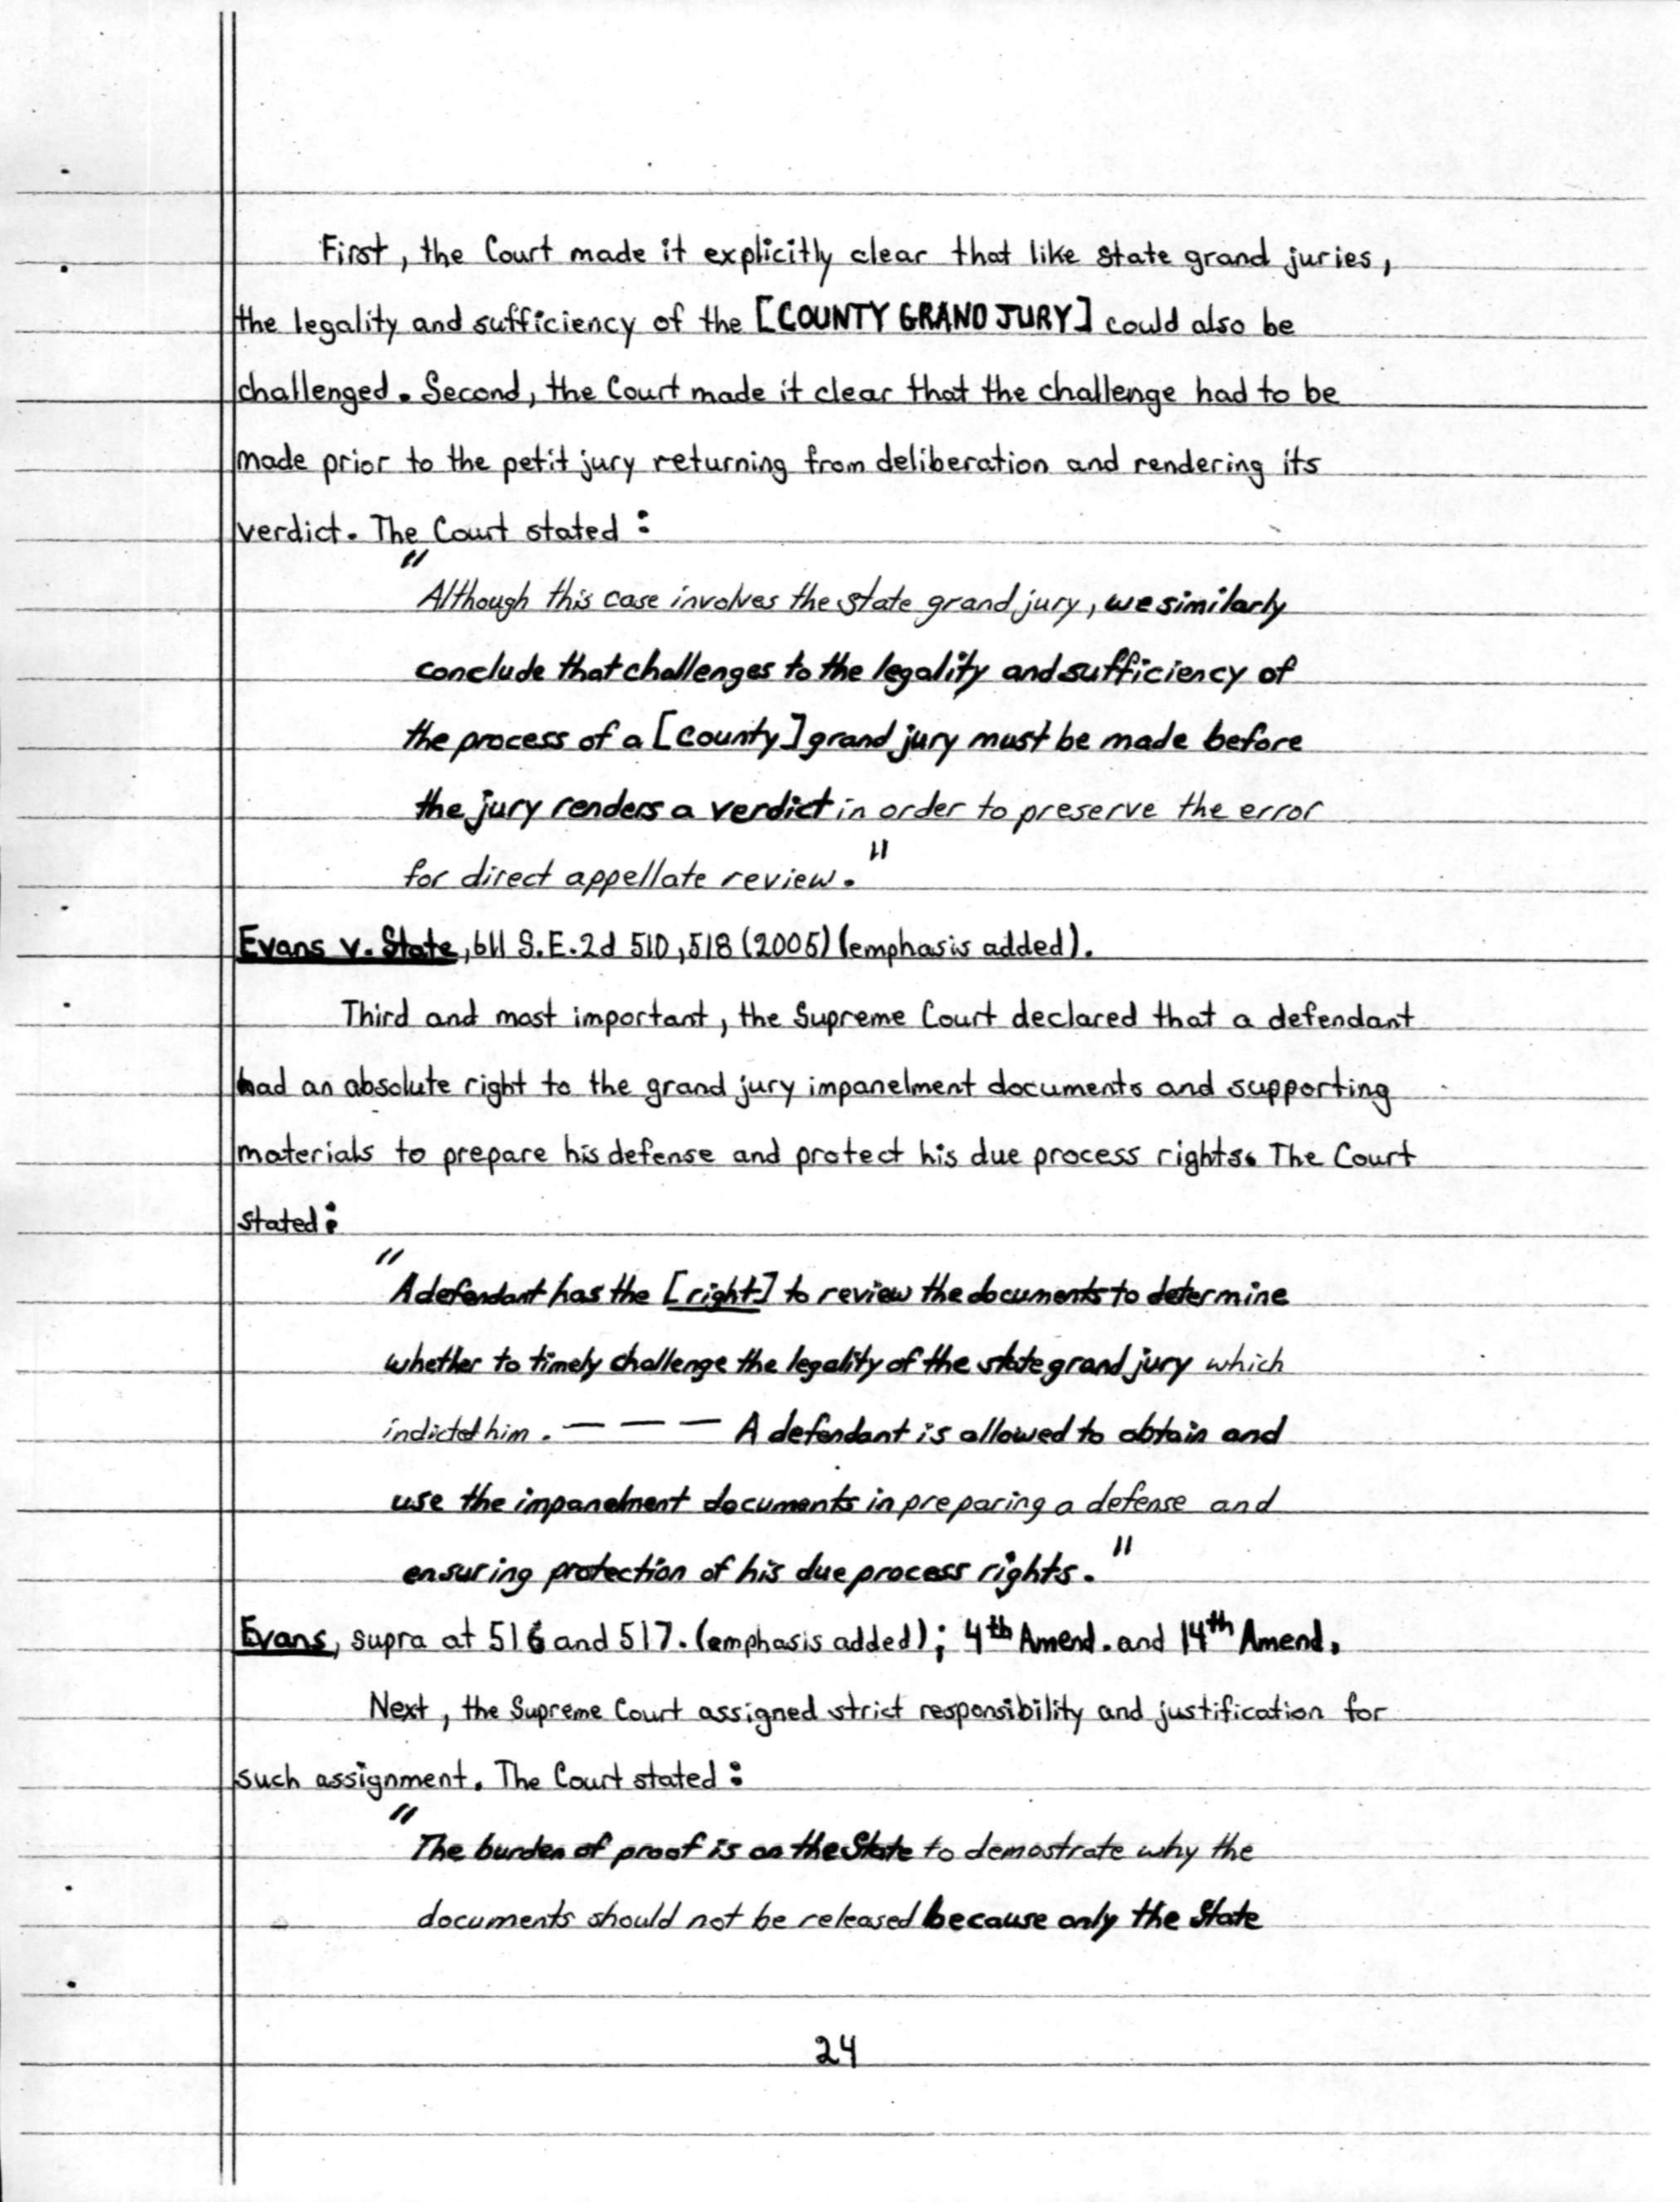 First, the Court made it explicitly clear that like state grand juries,
the legality and sufficiency of the [COUNTY GRAND JURY] could also be
challenged. Second, the Court made it clear that the challenge had to be
made prior to the petit jury returning from deliberation and rendering its
verdict. The Court stated:
"Although this case involves the state grand jury, we similarly
conclude that challenges to the legality and sufficiency of
the process of a [county] grand jury must be made before
the jury renders a verdict in order to preserve the error
for direct appellate review."
Evans v. State, 611 S.E.2d 510, 518 (2005) (emphasis added).
Third and most important, the Supreme Court declared that a defendant
had an absolute right to the grand jury impanelment documents and supporting
materials to prepare his defense and protect his due process rights. The Court
stated:
"A defendant has the [right] to review the documents to determine
whether to timely challenge the legality of the state grand jury which
indicted him. — — — A defendant is allowed to obtain and
use the impanelment documents in preparing a defense and
ensuring protection of his due process rights."
Evans, supra at 516 and 517. (emphasis added); 4th Amend. and 14th Amend.
Next, the Supreme Court assigned strict responsibility and justification for
such assignment. The Court stated:
"The burden of proof is on the State to demostrate why the
documents should not be released because only the State
24